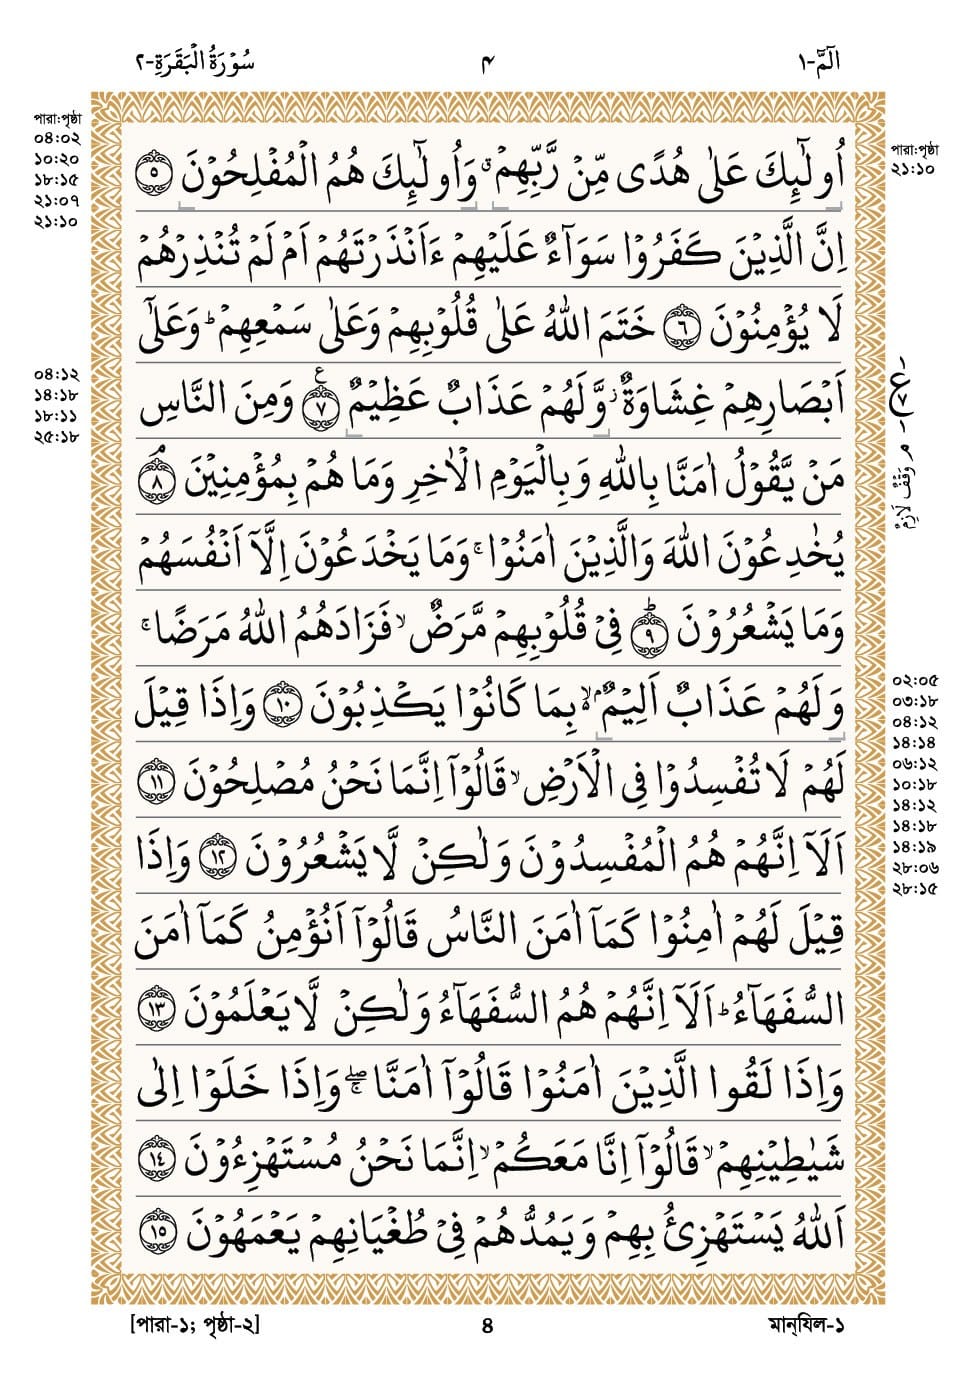 الٓمّٓ-١
۴
سُوْرَةُ الْبَقَرَةِ-٢
পারা:পৃষ্ঠা
০৪:০২
১০:২০
১৮:১৫
২১:০৭
২১:১০
পারা:পৃষ্ঠা
২১:১০
اُولٰٓئِكَ عَلٰى هُدًى مِّنْ رَّبِّهِمْ ۛۗ وَاُولٰٓئِكَ هُمُ الْمُفْلِحُوْنَ ۝٥
اِنَّ الَّذِيْنَ كَفَرُوْا سَوَآءٌ عَلَيْهِمْ ءَاَنْذَرْتَهُمْ اَمْ لَمْ تُنْذِرْهُمْ
لَا يُؤْمِنُوْنَ ۝٦ خَتَمَ اللّٰهُ عَلٰى قُلُوْبِهِمْ وَعَلٰى سَمْعِهِمْ ؕ وَعَلٰٓى
اَبْصَارِهِمْ غِشَاوَةٌ ؗ وَّلَهُمْ عَذَابٌ عَظِيْمٌ ۝٧ ع وَمِنَ النَّاسِ
مَنْ يَّقُوْلُ اٰمَنَّا بِاللّٰهِ وَبِالْيَوْمِ الْاٰخِرِ وَمَا هُمْ بِمُؤْمِنِيْنَ ۝٨ ۘ
يُخٰدِعُوْنَ اللّٰهَ وَالَّذِيْنَ اٰمَنُوْا ۚ وَمَا يَخْدَعُوْنَ اِلَّآ اَنْفُسَهُمْ
وَمَا يَشْعُرُوْنَ ۝٩ ؕ فِيْ قُلُوْبِهِمْ مَّرَضٌ ۙ فَزَادَهُمُ اللّٰهُ مَرَضًا ۚ
وَلَهُمْ عَذَابٌ اَلِيْمٌ ۢ ۙ بِمَا كَانُوْا يَكْذِبُوْنَ ۝١٠ وَاِذَا قِيْلَ
لَهُمْ لَا تُفْسِدُوْا فِى الْاَرْضِ ۙ قَالُوْٓا اِنَّمَا نَحْنُ مُصْلِحُوْنَ ۝١١
اَلَآ اِنَّهُمْ هُمُ الْمُفْسِدُوْنَ وَلٰكِنْ لَّا يَشْعُرُوْنَ ۝١٢ وَاِذَا
قِيْلَ لَهُمْ اٰمِنُوْا كَمَآ اٰمَنَ النَّاسُ قَالُوْٓا اَنُؤْمِنُ كَمَآ اٰمَنَ
السُّفَهَآءُ ؕ اَلَآ اِنَّهُمْ هُمُ السُّفَهَآءُ وَلٰكِنْ لَّا يَعْلَمُوْنَ ۝١٣
وَاِذَا لَقُوا الَّذِيْنَ اٰمَنُوْا قَالُوْٓا اٰمَنَّا ۖۚ وَاِذَا خَلَوْا اِلٰى
شَيٰطِيْنِهِمْ ۙ قَالُوْٓا اِنَّا مَعَكُمْ ۙ اِنَّمَا نَحْنُ مُسْتَهْزِءُوْنَ ۝١٤
اَللّٰهُ يَسْتَهْزِئُ بِهِمْ وَيَمُدُّهُمْ فِيْ طُغْيَانِهِمْ يَعْمَهُوْنَ ۝١٥
০৪:১২
১৪:১৮
১৮:১১
২৫:১৮
ع
٧
م وَقْفٌ لَازِمٌ
০২:০৫
০৩:১৮
০৪:১২
১৪:১৪
০৬:১২
১০:১৮
১৪:১২
১৪:১৮
১৪:১৯
২৮:০৬
২৮:১৫
[পারা-১; পৃষ্ঠা-২]
৪
মান্‌যিল-১